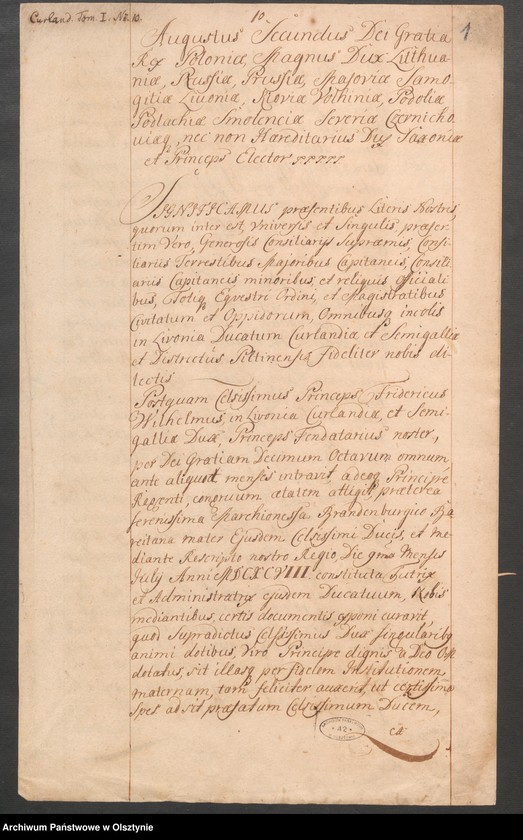 Curland. Tom. I. No. 10.
10.
1
Augustus Secundus Dei Gratia
Rex Poloniæ, Magnus Dux Lithua-
niæ, Russiæ, Prussiæ, Masoviæ Samo-
gitiæ Livoniæ, Kioviæ Volhiniæ, Podoliæ
Podlachiæ Smolenciæ Severiæ Czernicho
viæq, nec non Hæreditarius Dux Saxoniæ
et Princeps Elector
SIGNIFICAMUS præsentibus Literis Nostris
quorum inter est, Vniversis et Singulis, præser-
tim Vero, Generosis Consiliarys Supræmis, Consi-
liariis Terrestibus Majoribus Capitaneis, Consili
ariis Capitaneis minoribus, et reliquis officiali
bus, Totiq Eqvestri Ordini, et Magistratibus
Civitatum et Oppidorum, Omnibusq incolis
in Livonia Ducatum Curlandiæ et Semigalliæ
et Districtus Piltinensis fideliter nobis di-
lectis
Postquam Celsissimus Princeps Fridericus
Wilhelmus, in Livonia Curlandiæ, et Semi-
galliæ Dux, Princeps Feudatarius noster,
per Dei Gratiam Decimum Octavum annum
ante aliquot menses intravit, adeoq Principe
Regenti, congruum ætatem attigit, præterea
serenissima Marchionessa Brandenburgico Ba
reitana mater Ejusdem Celsissimi Ducis, et Me-
diante Rescripto nostro Regio, Die Menses
July Anni MDCXCVIII. constituta Tutrix
et Administratrix ejusdem Ducatuum, Nobis
mediantibus, certis documentis, exponi curavit,
quod Supradictus Celsissimus Dux singularibq
animi dotibus, Viro Principe dignis à Deo
dotatus, sit illasq per fidelem Institutionem,
maternam, tam feliciter auxerit, ut certissima
spes ad sit præfatum Celsissimum Ducem,
42
Archiwum Państwowe w Olsztynie